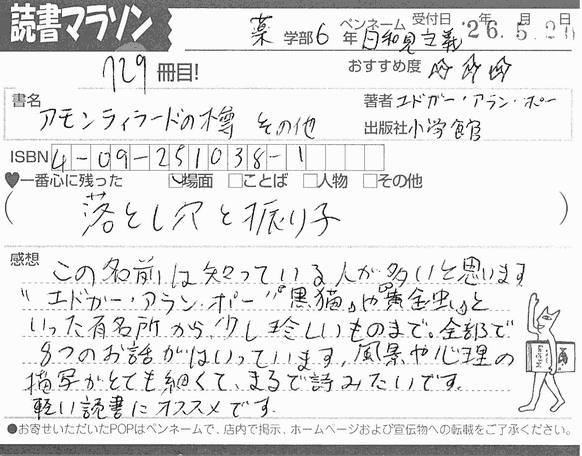 読書マラソン
薬 学部 6 年 ペンネーム 日和見主義 受付日 '26.5.20
729 冊目!
おすすめ度 ☆☆☆
書名 アモンティラードの樽 その他
著者 エドガー・アラン・ポー
出版社 小学館
ISBN 4-09-251038-1
♥一番心に残った □場面 □ことば □人物 □その他
(落とし穴と振り子)
感想
この名前は知っている人が多いと思います
"エドガー・アラン・ポー"『黒猫』や『黄金虫』と
いった有名所から、少し珍しいものまで。全部で
8つのお話がはいっています。風景や心理の
描写がとても細くて、まるで詩みたいです。
軽い読書にオススメです.
●お寄せいただいたPOPはペンネームで、店内で掲示、ホームページおよび宣伝物への転載をご了承ください。